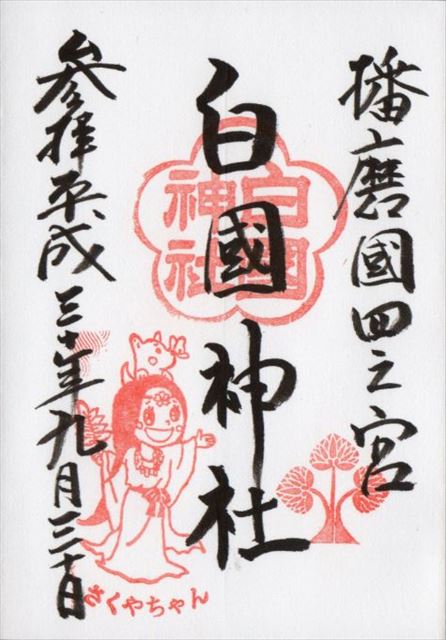 播磨國四之宮
白國神社
白国神社
参拝平成三十年九月三十日
さくやちゃん